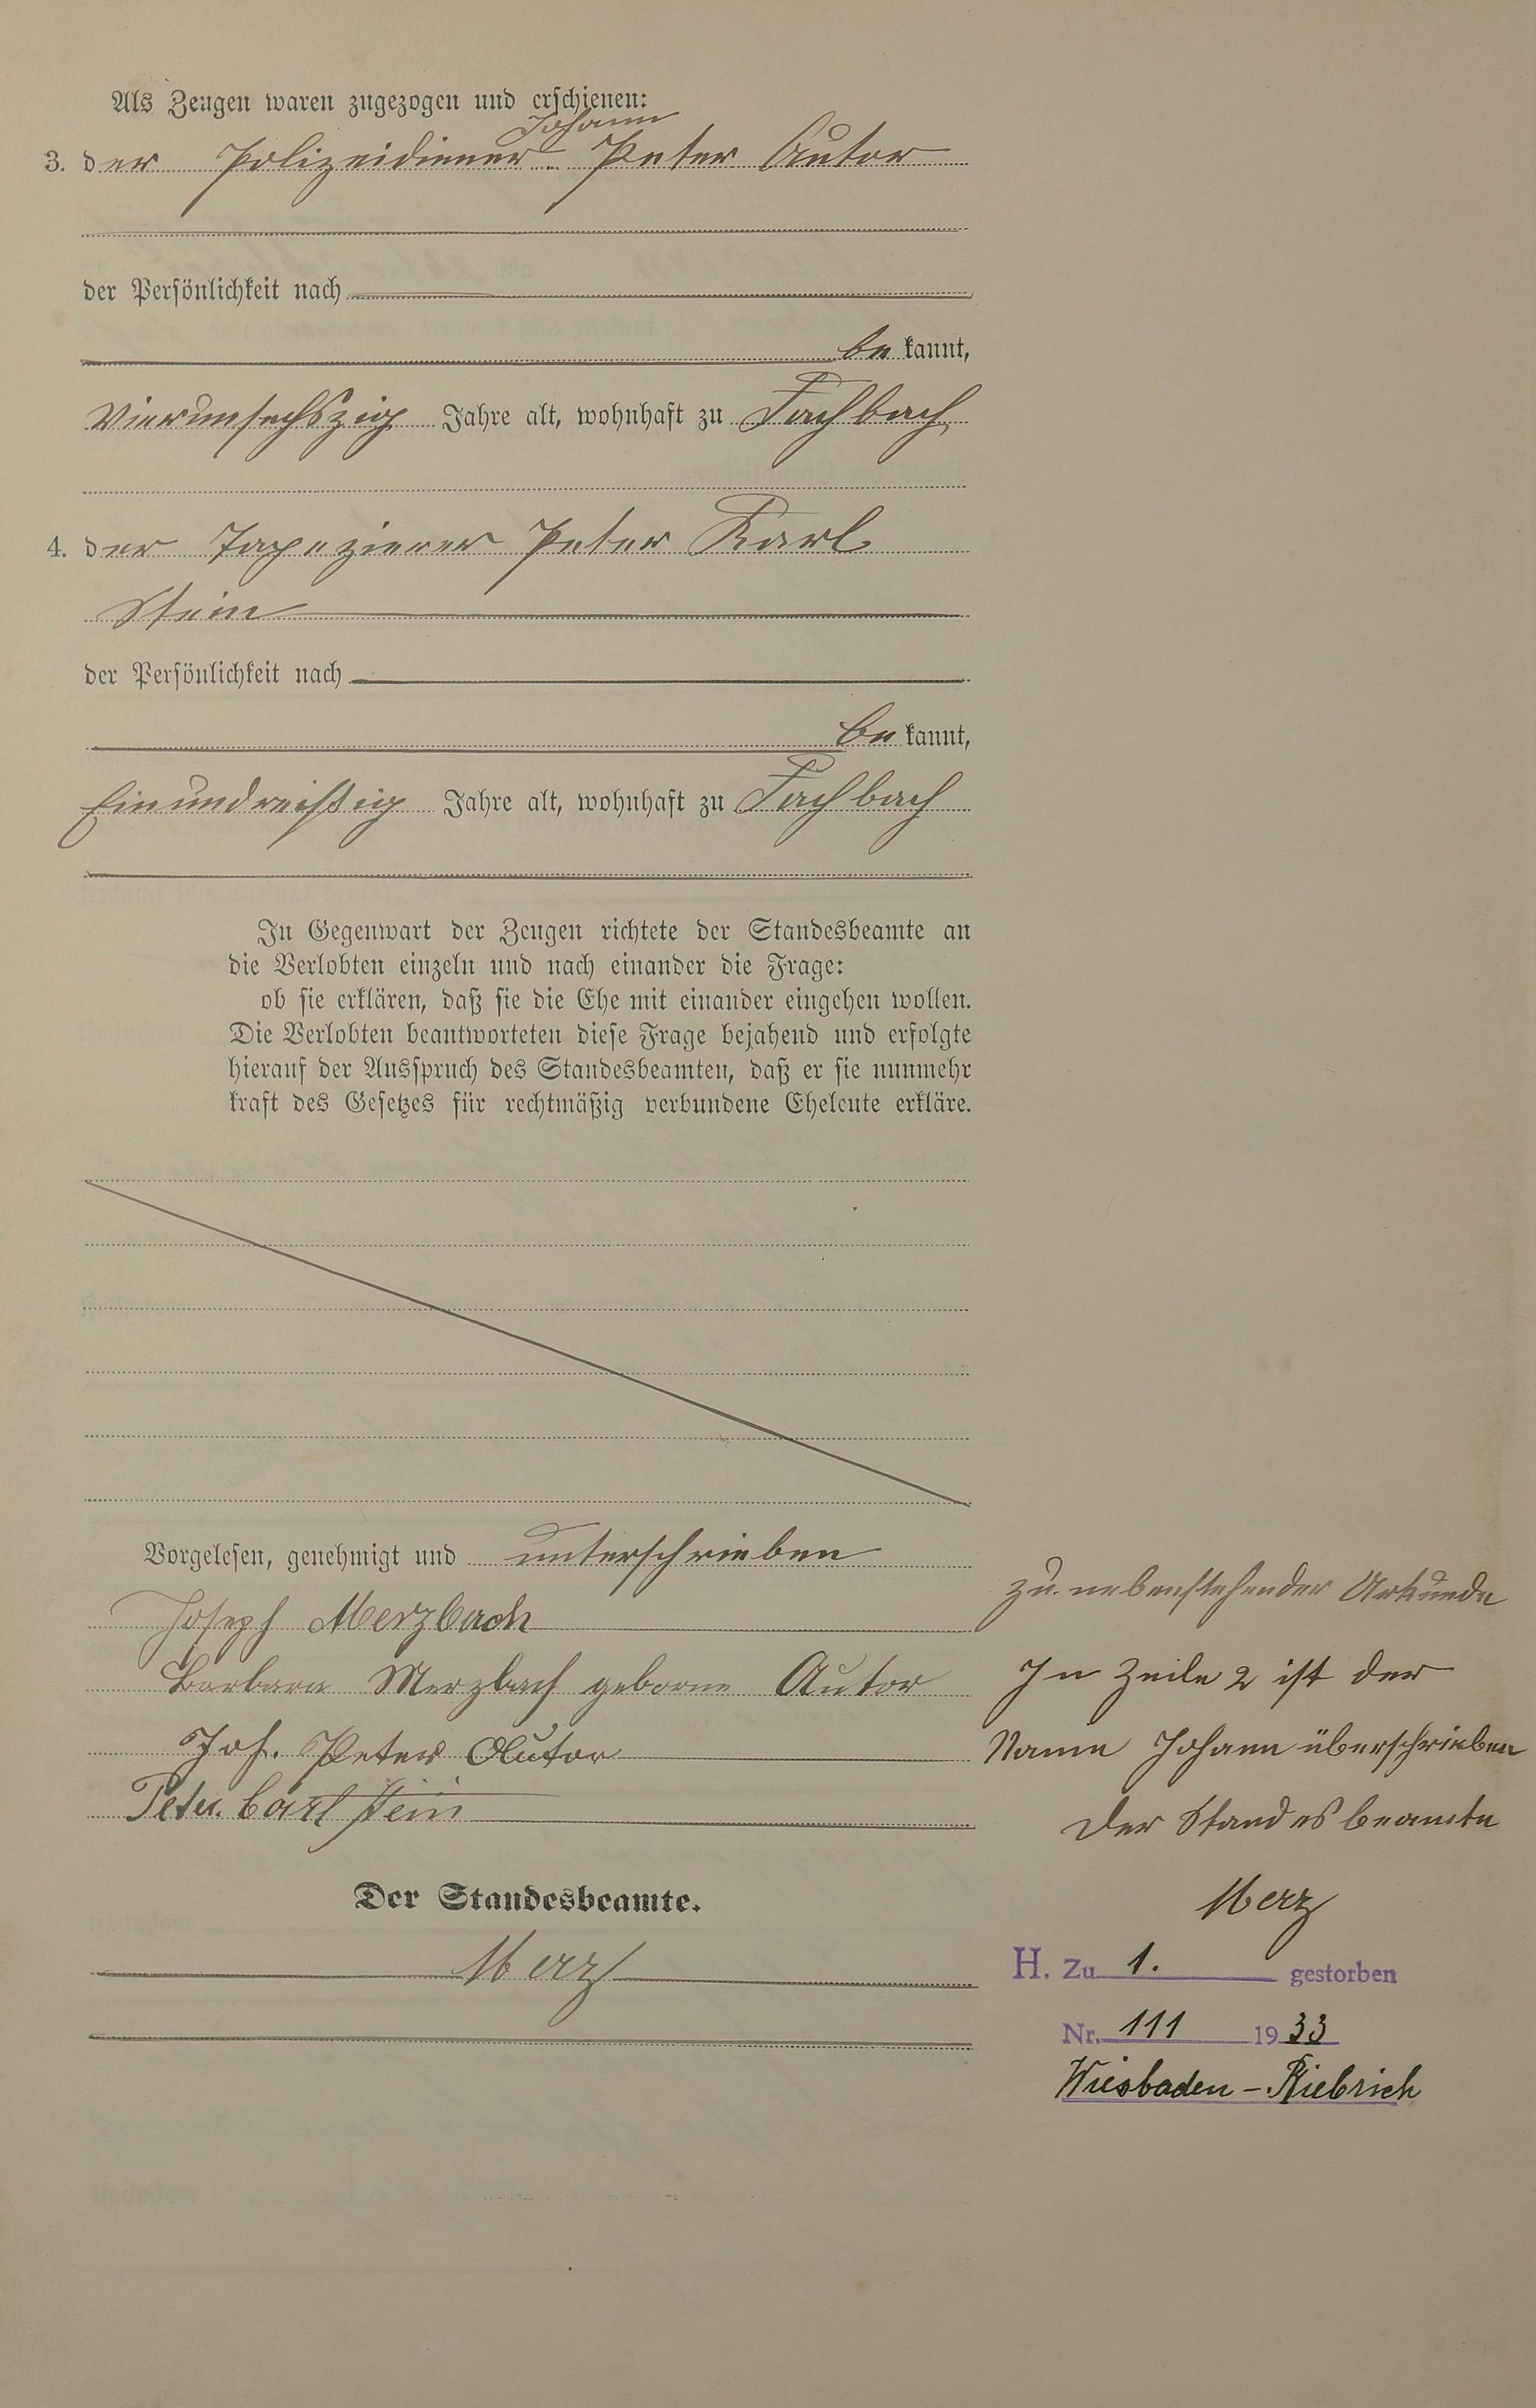 Als Zeugen waren zugezogen und erschienen:
Johann
3. der Polizeidiener Peter Autor
der Persönlichkeit nach
be kannt,
Vierunsechszig Jahre alt, wohnhaft zu Fachbach,
4. der Tapezierer Peter Karl
Stein
der Persönlichkeit nach
be kannt,
Einundreißig Jahre alt, wohnhaft zu Fachbach
In Gegenwart der Zeugen richtete der Standesbeamte an
die Verlobten einzeln und nach einander die Frage:
ob sie erklären, daß sie die Ehe mit einander eingehen wollen.
Die Verlobten beantworteten diese Frage bejahend und erfolgte
hierauf der Ausspruch des Standesbeamten, daß er sie nunmehr
kraft des Gesetzes für rechtmäßig verbundene Eheleute erkläre.
Vorgelesen, genehmigt und unterschrieben
Joseph Merzbach
Barbara Merzbach geborne Autor
Joh. Peter Autor
Peter Carl Stein
Der Standesbeamte.
Merz
zu nebenstehender Urkunde
In Zeile 2 ist der
Name Johann überschrieben
Der Standesbeamte
Merz
H. Zu 1. gestorben
Nr. 111 1933
Wiesbaden - Biebrich